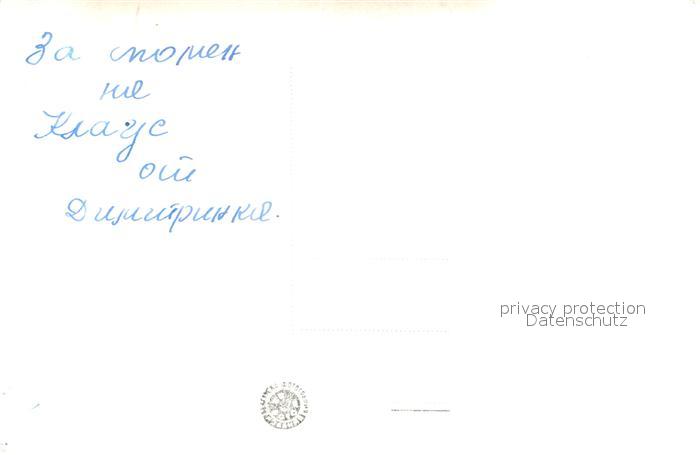 За спомен
на
Клаус
от
Димитринка.
privacy protection
Datenschutz